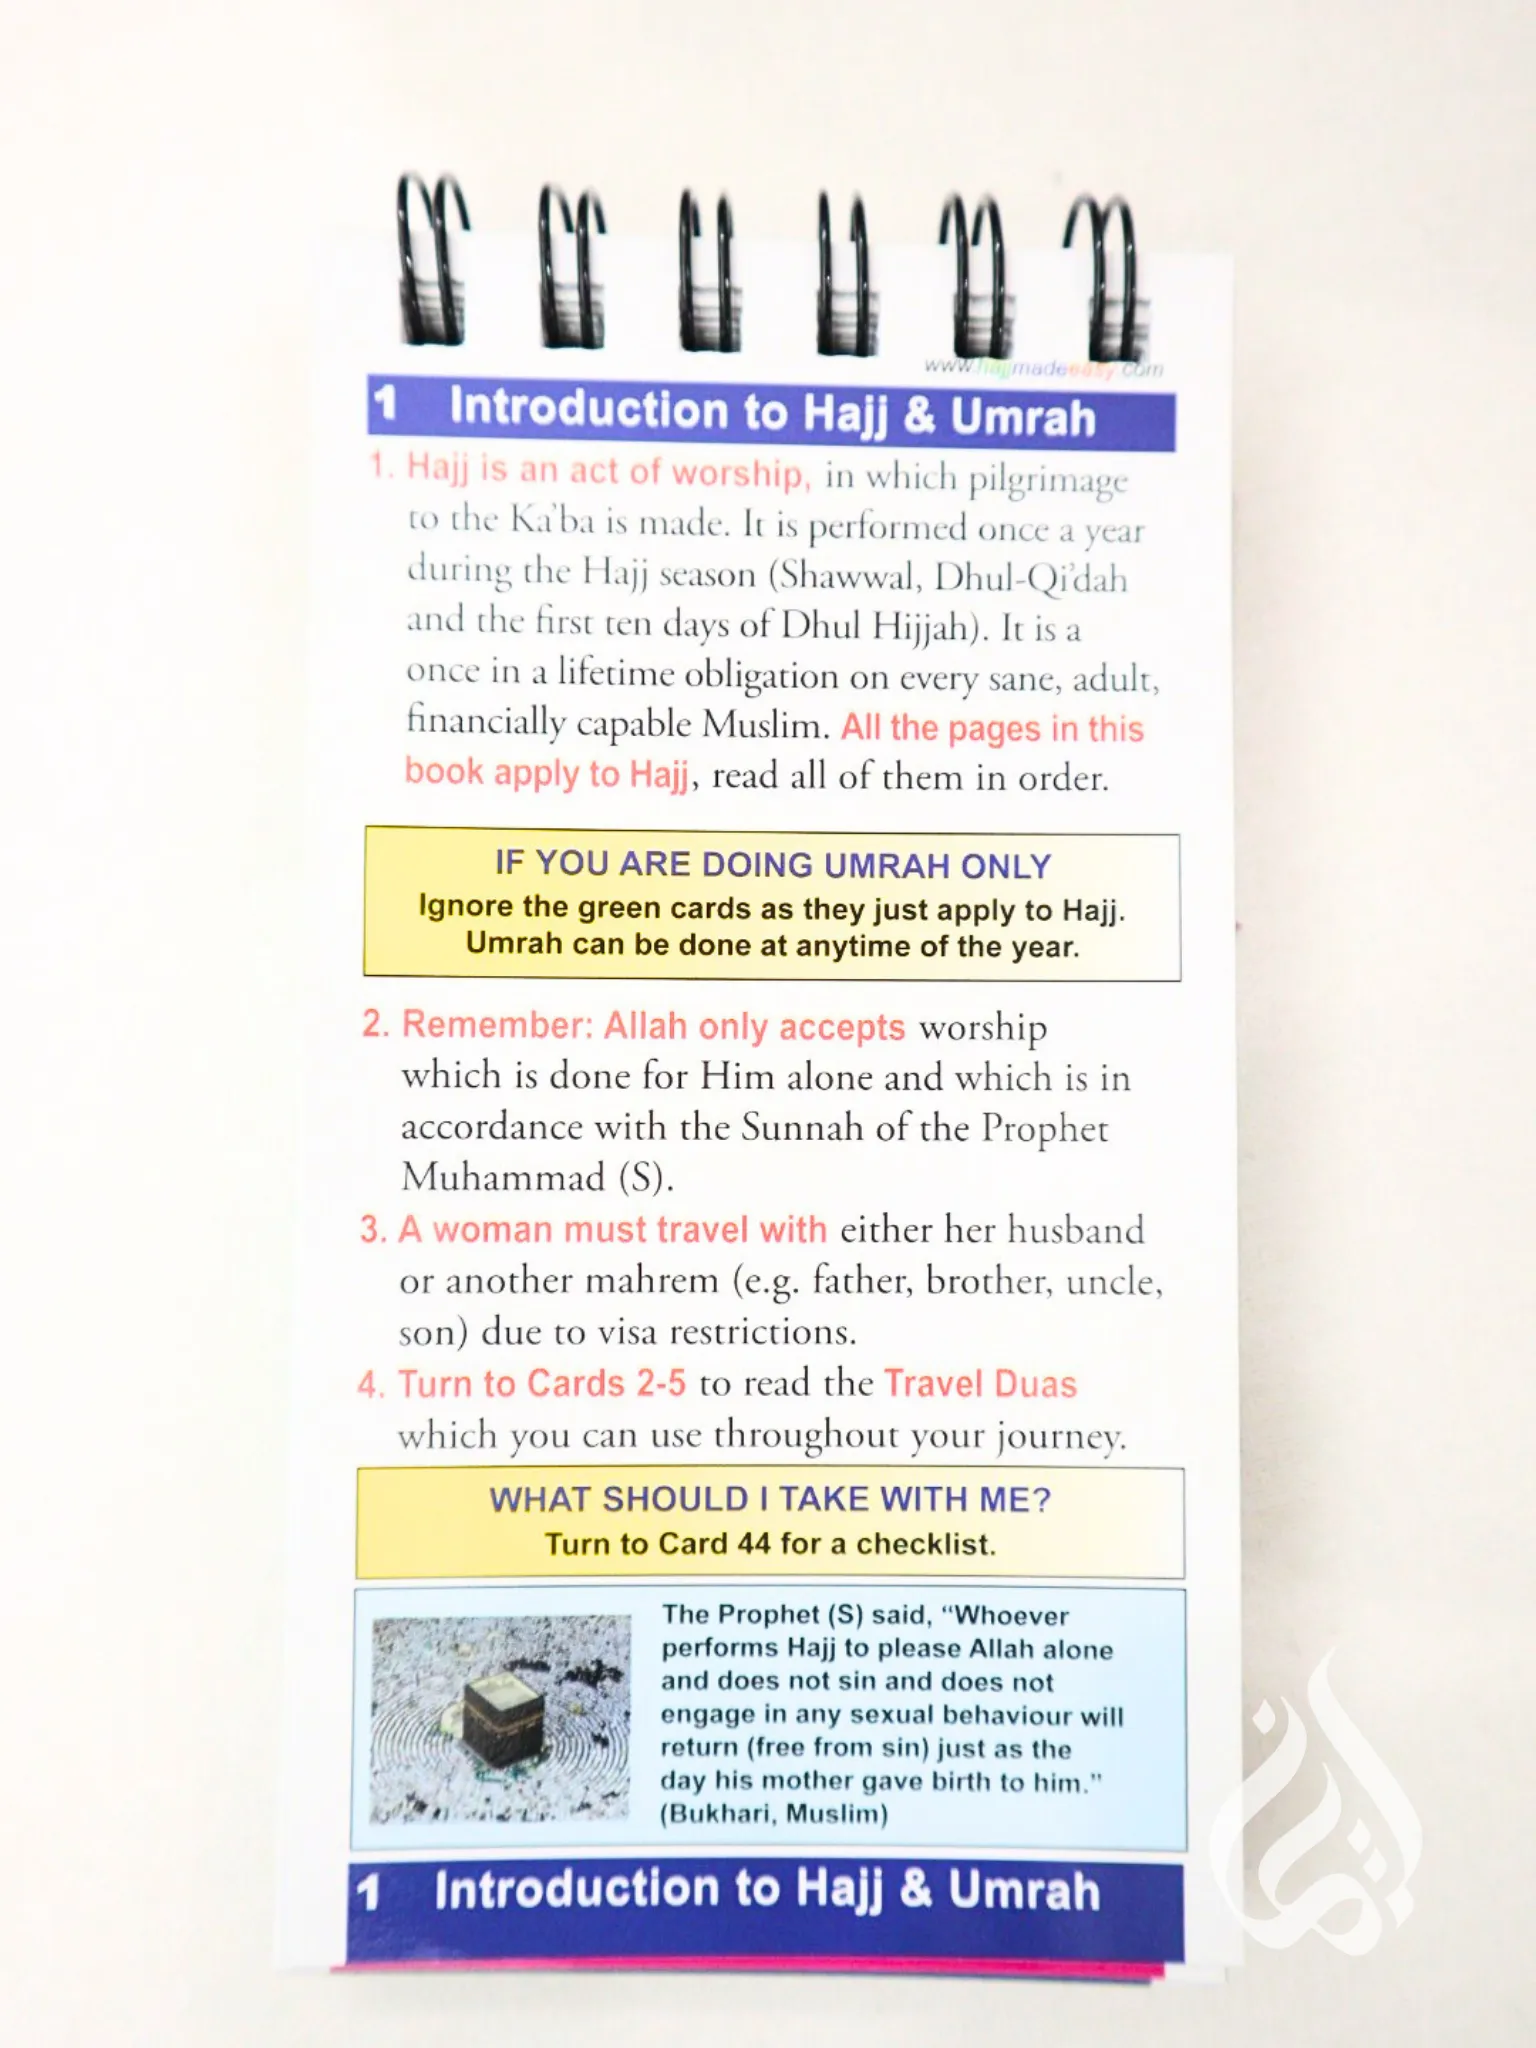 www.hajjmadeeasy.com
1 Introduction to Hajj & Umrah
1. Hajj is an act of worship, in which pilgrimage
to the Ka'ba is made. It is performed once a year
during the Hajj season (Shawwal, Dhul-Qi'dah
and the first ten days of Dhul Hijjah). It is a
once in a lifetime obligation on every sane, adult,
financially capable Muslim. All the pages in this
book apply to Hajj, read all of them in order.
IF YOU ARE DOING UMRAH ONLY
Ignore the green cards as they just apply to Hajj.
Umrah can be done at anytime of the year.
2. Remember: Allah only accepts worship
which is done for Him alone and which is in
accordance with the Sunnah of the Prophet
Muhammad (S).
3. A woman must travel with either her husband
or another mahrem (e.g. father, brother, uncle,
son) due to visa restrictions.
4. Turn to Cards 2-5 to read the Travel Duas
which you can use throughout your journey.
WHAT SHOULD I TAKE WITH ME?
Turn to Card 44 for a checklist.
The Prophet (S) said, “Whoever
performs Hajj to please Allah alone
and does not sin and does not
engage in any sexual behaviour will
return (free from sin) just as the
day his mother gave birth to him.”
(Bukhari, Muslim)
1 Introduction to Hajj & Umrah